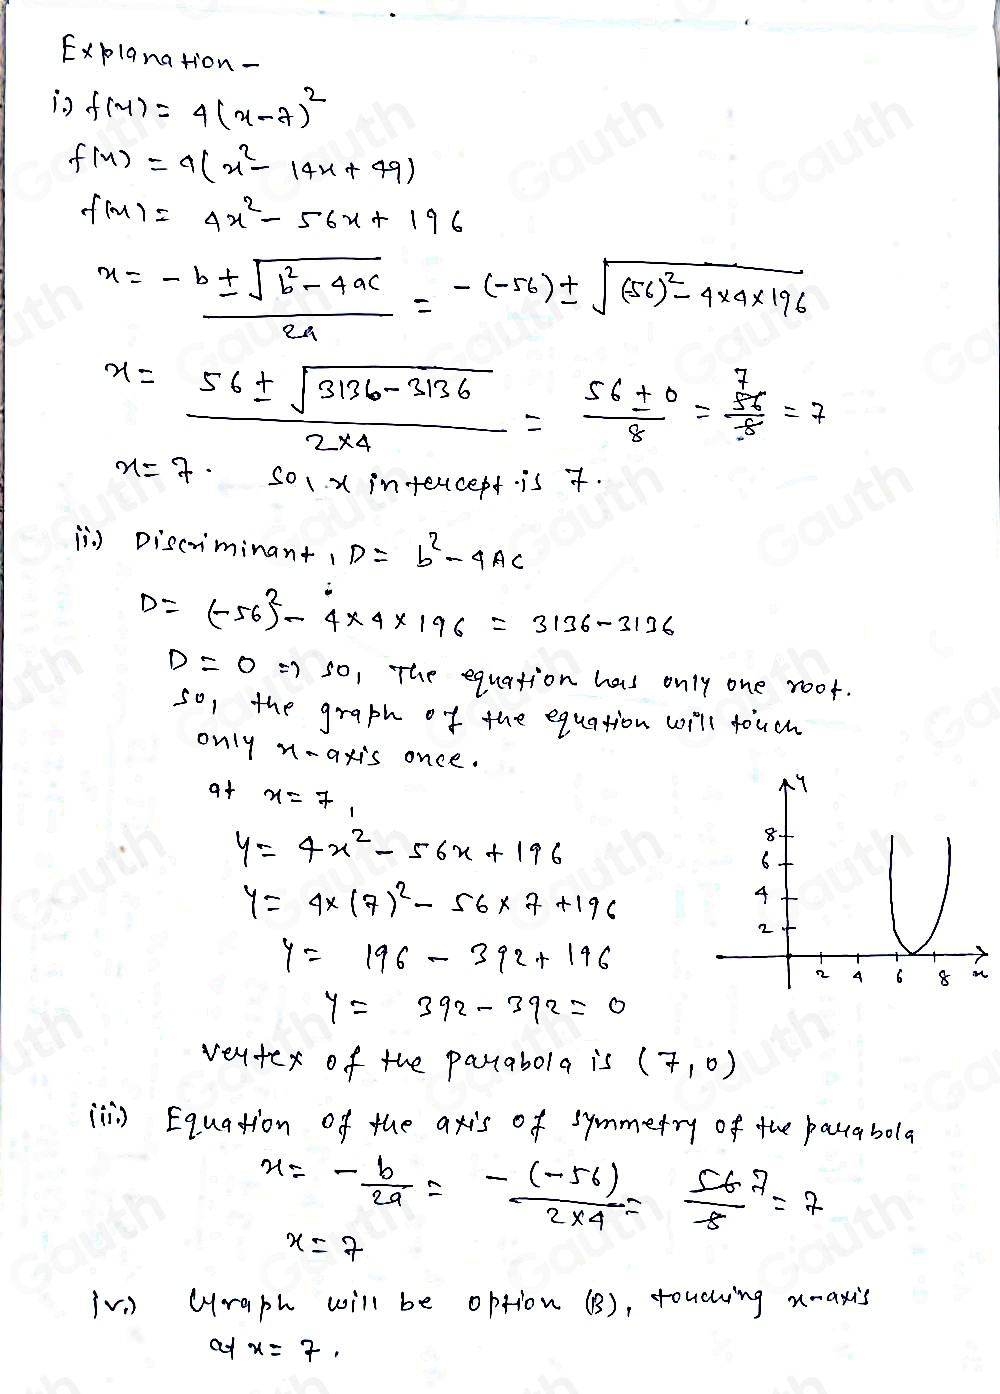 Explanation -
i.) f(x) = 4(x-7)²
f(x) = 4(x² - 14x + 49)
f(x) = 4x² - 56x + 196
x = -b ± √(b² - 4ac) / 2a = -(-56) ± √((-56)² - 4×4×196)
x = 56 ± √(3136-3136) / 2×4 = 56 ± 0 / 8 = 56 / 8 7 = 7
x = 7. So, x intercept is 7.
ii.) Discriminant, D = b² - 4AC
D = (-56)² - 4×4×196 = 3136-3136
D = 0 => so, The equation has only one root.
so, the graph of the equation will touch
only x-axis once.
at x = 7,
y = 4x² - 56x + 196
y = 4×(7)² - 56×7+196
y = 196 - 392 + 196
y = 392 - 392 = 0
y
8
6
4
2
2 4 6 8 x
Vertex of the parabola is (7,0)
iii.) Equation of the axis of symmetry of the parabola
x = -b/2a = -(-56) / 2×4 = 56 7 / 8 = 7
x = 7
iv.) Graph will be option (B), touching x-axis
at x = 7.
Gauth